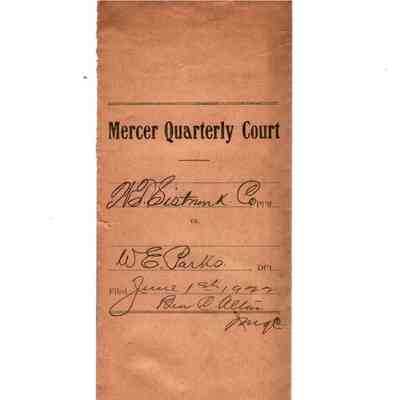 Mercer Quarterly Court
H.T. Sistrunk Co PFF
vs.
W E. Parks DFT.
Filed June 1st, 1922
Ben D Allin